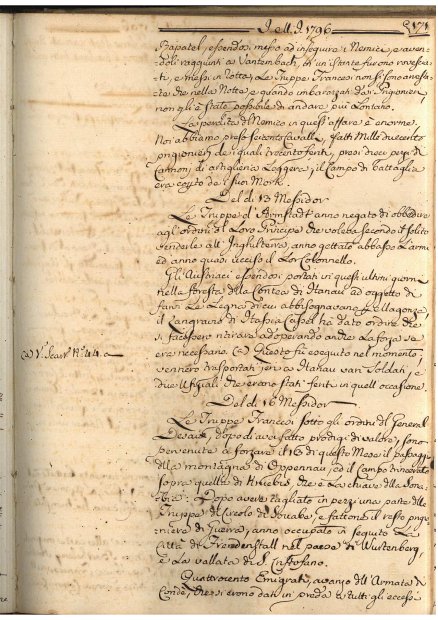 I. et II. 1796
messo ad inseguire i Nemici, e aven-
doli raggiunti a Vantembach, in un istante furono rovescia-
ti, e messi in Rotta. Le Truppe Francesi non si sono arresta-
te che nella Notte, e quando imbarazzati da' Prigionieri
non gli è stato possibile di andare più lontano.
La perdita del Nemico in quest'affare è enorme.
Noi abbiamo preso Cavalli, fatti Mille duecento
prigionieri, de' quali trecento feriti, presi dieci pezzi di
Cannoni di artiglieria Leggera; il Campo di battaglia
era de' suoi Morti.
Del dì 13 Messidor
Le Truppe d'Armstadt anno negato di obbedire
agl'ordini del Loro Principe che voleva secondo il solito
venderle all'Inghilterra, anno gettato abbasso L'armi
ed anno quasi ucciso il Lor Colonnello.
Gli Austriaci essendosi portati in quest'ultimi giorni
nella foresta della Contea di Hanau ad oggetto di
farvi Le Legna di cui abbisognavano
il ha dato ordine che
si facessero ritirare adoperando anche La forza se
era necessario (a) Questo fu eseguito nel momento,
vennero trasportati jeri a Hanau vari Soldati, e
due Ufiziali che erano stati feriti in quell'occasione.
(a) V. N.° 44. a
Del dì 16 Messidor
Le Truppe Francesi sotto gli ordini del General
Desaix, dopo di aver fatto prodigi di valore, sono
pervenute a forzare il 16 di questo Mese il passaggio
della montagna di Oppenau, ed il Campo trincerato
sopra quella di Kniebis, che è La chiave della
Dopo aver tagliato in pezzi una parte delle
Truppe del Circolo di Souabe, e fattone il resto prigio-
niere di Guerra, anno occupato in seguito La
Città di Freudenstatt nel paese di Wurtenberg,
e La vallata di S. Cristofano.
Quattrocento Emigrati, avanzo dell'Armata di
Condé, che si erono dati in preda a tutti gli eccessi